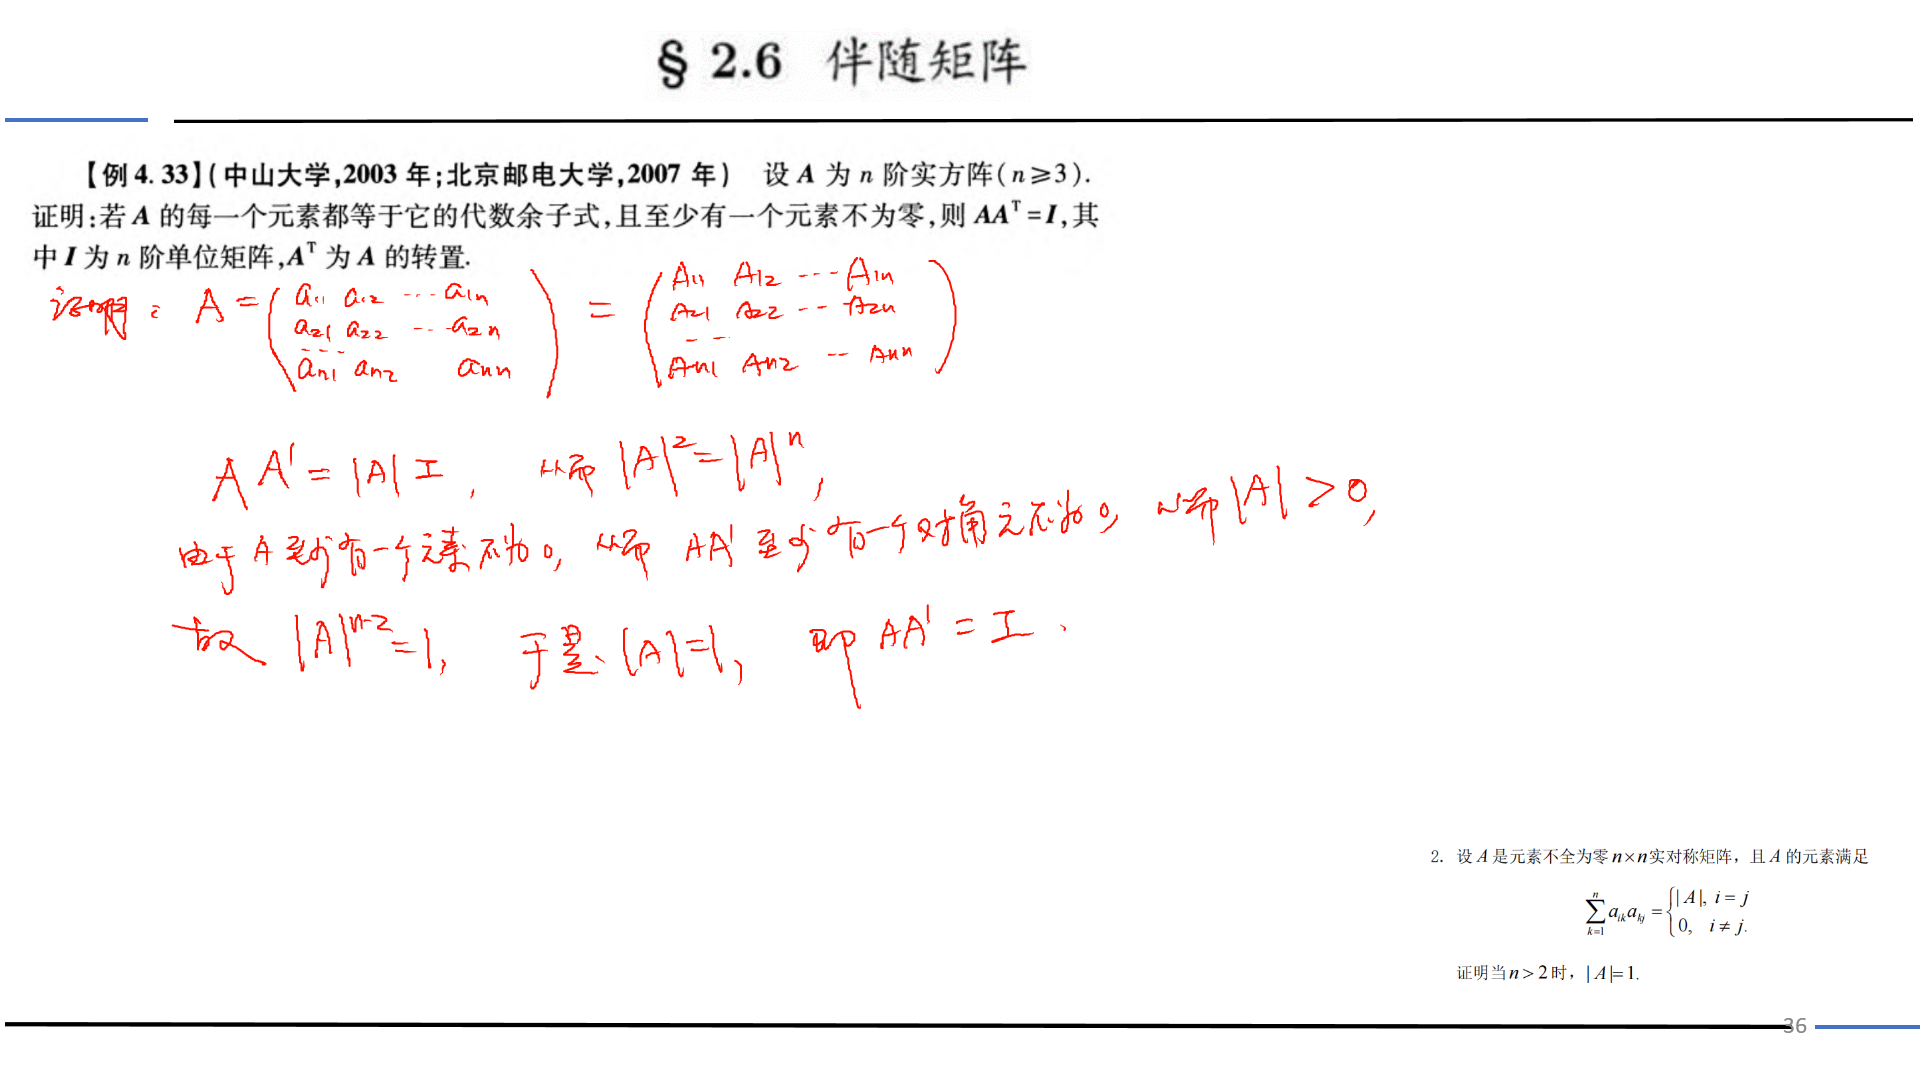 § 2.6 伴随矩阵
【例 4.33】(中山大学,2003 年;北京邮电大学,2007 年) 设 A 为 n 阶实方阵(n≥3).
证明:若 A 的每一个元素都等于它的代数余子式,且至少有一个元素不为零,则 AAᵀ=I,其
中 I 为 n 阶单位矩阵,Aᵀ 为 A 的转置.
证明: A = ( a₁₁ a₁₂ ··· a₁ₙ = ( A₁₁ A₁₂ ··· A₁ₙ
a₂₁ a₂₂ ··· a₂ₙ A₂₁ A₂₂ ··· A₂ₙ
··· ···
aₙ₁ aₙ₂ aₙₙ ) Aₙ₁ Aₙ₂ ·· Aₙₙ )
A A' = |A| I , 从而 |A|² = |A|ⁿ ,
由于 A 至少有一个元素不为 0, 从而 AA' 至少有一个对角元不为 0, 从而 |A| > 0,
故 |A|ⁿ⁻² = 1, 于是 |A| = 1, 即 AA' = I .
2. 设 A 是元素不全为零 n×n 实对称矩阵，且 A 的元素满足
∑ₖ₌₁ⁿ aᵢₖaₖⱼ = { |A|, i = j
0, i ≠ j.
证明当 n > 2 时，| A |= 1.
36